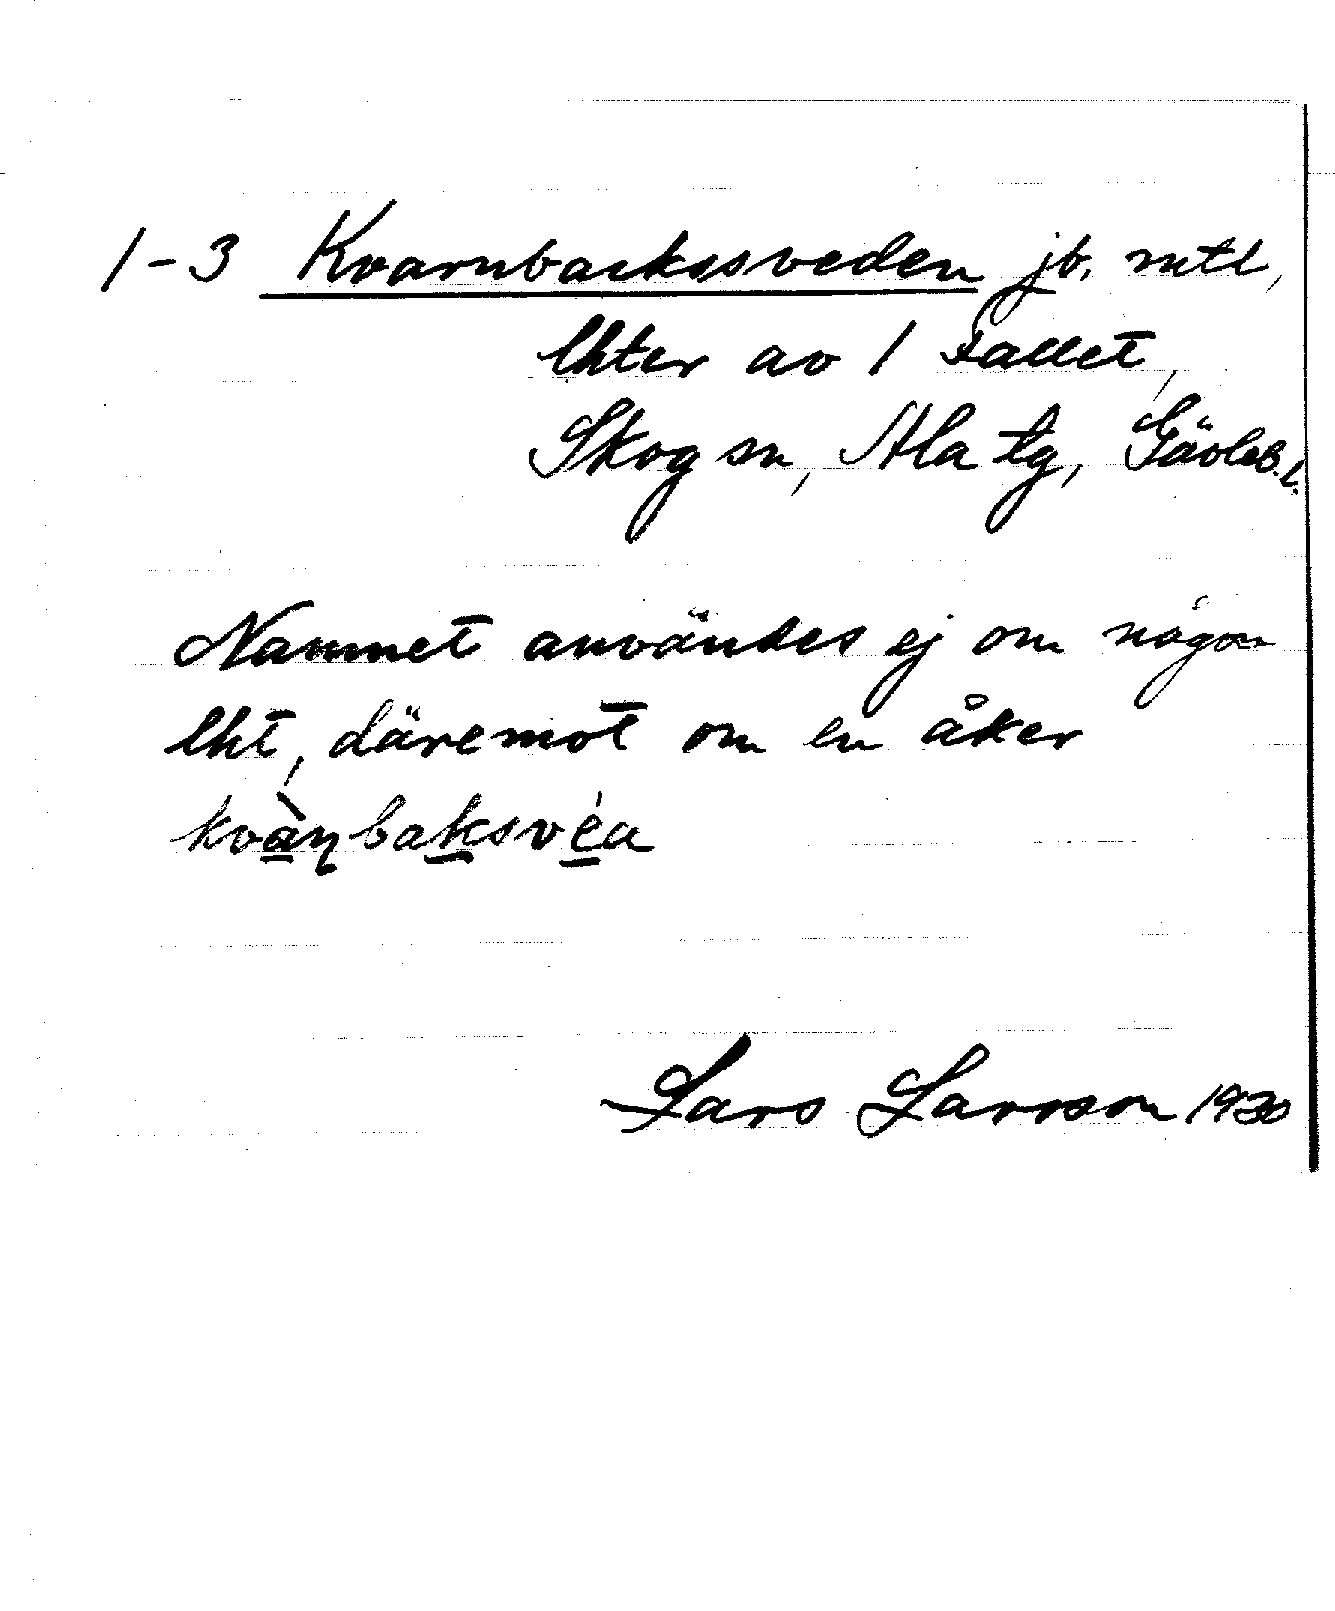 1-3 Kvarnbackssveden jb. mtl,
lhter av 1 Fallet,
Skog sn, Ala tg, Gävleb. l.
Namnet användes ej om någon
lht, däremot om en åker
kvàɳbaksvéa
Lars Larsson 1930